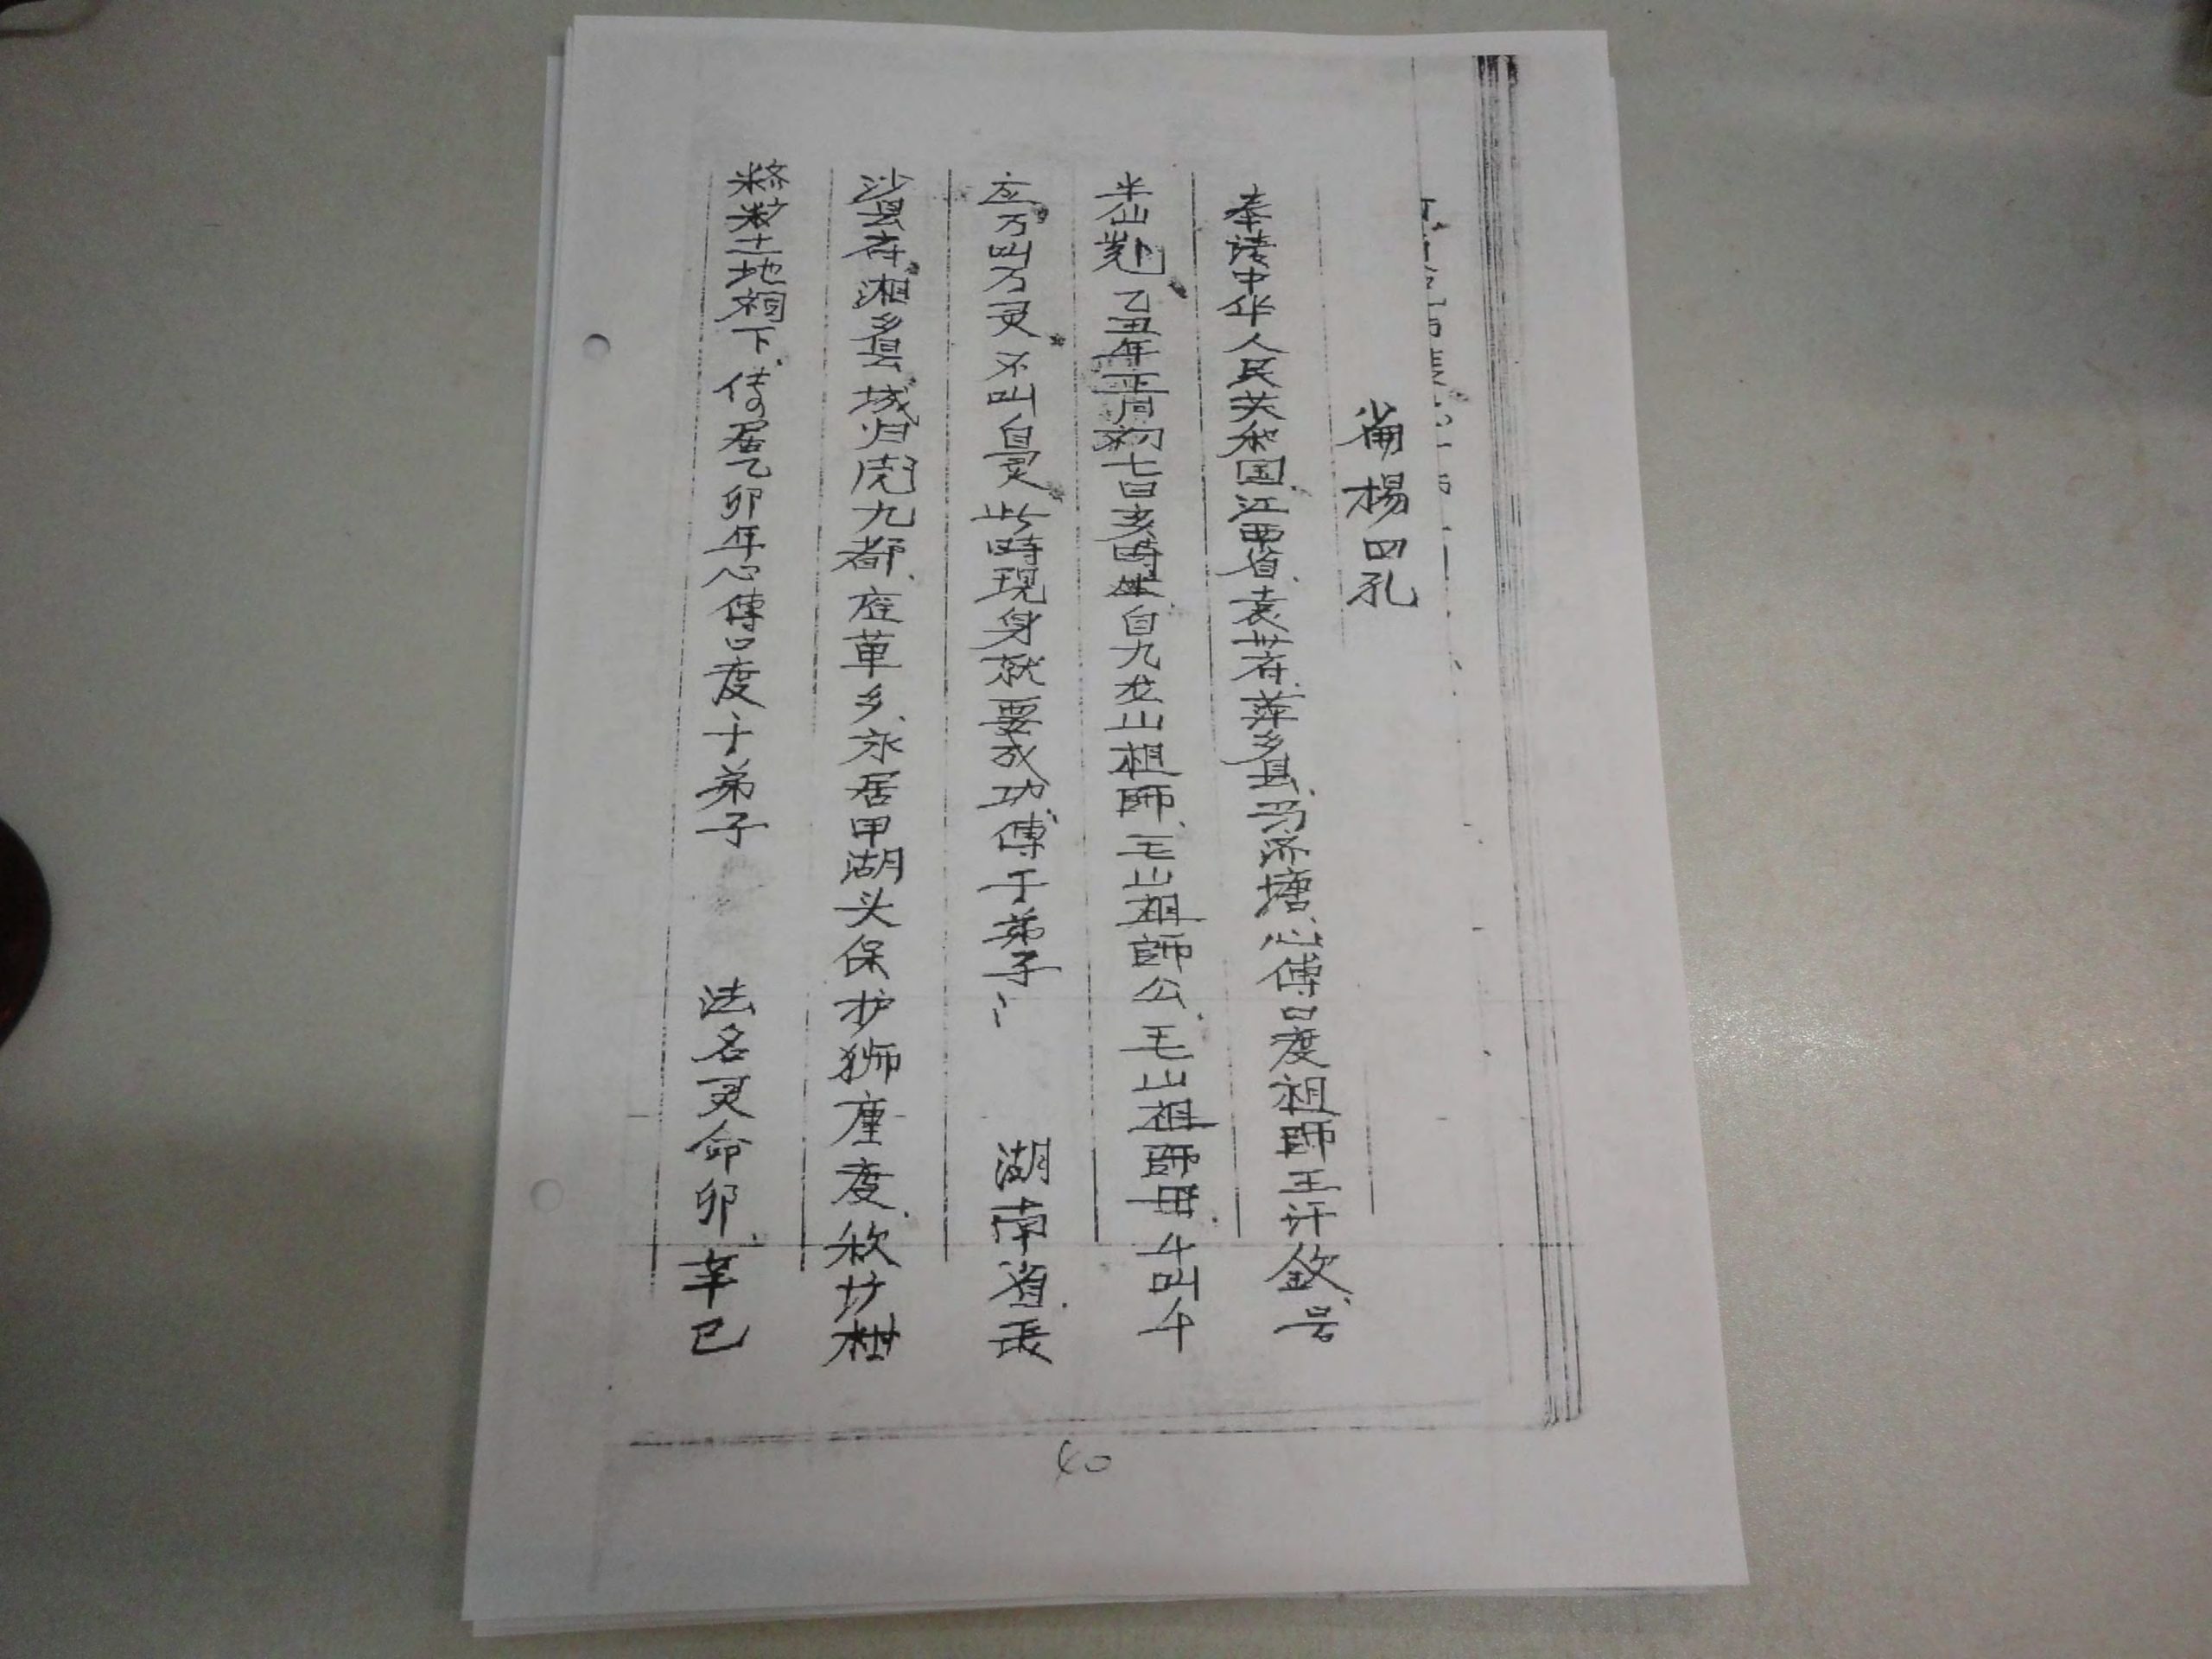 楊四孔
奉请中华人民共和国江西省袁州府萍乡县马济塘心傅口度祖師王汗欽号
半山乙丑年正月初七日亥時生自九龙山祖師毛山祖師公毛山祖師毋斗叫斗
应万叫万灵不叫自灵此時現身就要成功傅于弟子湖南省長
沙县府湘乡县城归虎九都座草乡永居甲湖头保护狮座度
土地祠下传居乙卯年心傅口度于弟子法名灵命卯辛已
40